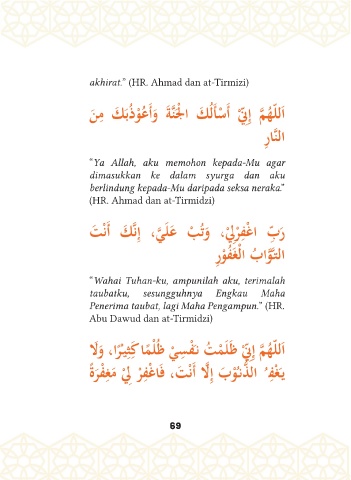 akhirat.” (HR. Ahmad dan at-Tirmizi)
اَللّٰهُمَّ إِنِّيْ أَسْأَلُكَ الْجَنَّةَ وَأَعُوْذُبِكَ مِنَ
النَّارِ
“Ya Allah, aku memohon kepada-Mu agar
dimasukkan ke dalam syurga dan aku
berlindung kepada-Mu daripada seksa neraka.”
(HR. Ahmad dan at-Tirmidzi)
رَبِّ اغْفِرْلِيْ، وَتُبْ عَلَيَّ، إِنَّكَ أَنْتَ
التَّوَّابُ الْغَفُوْرِ
“Wahai Tuhan-ku, ampunilah aku, terimalah
taubatku, sesungguhnya Engkau Maha
Penerima taubat, lagi Maha Pengampun.” (HR.
Abu Dawud dan at-Tirmidzi)
اَللّٰهُمَّ إِنِّيْ ظَلَمْتُ نَفْسِيْ ظُلْمًا كَثِيْرًا، وَلَا
يَغْفِرُ الذُّنُوْبَ إِلَّا أَنْتَ، فَاغْفِرْ لِيْ مَغْفِرَةً
69